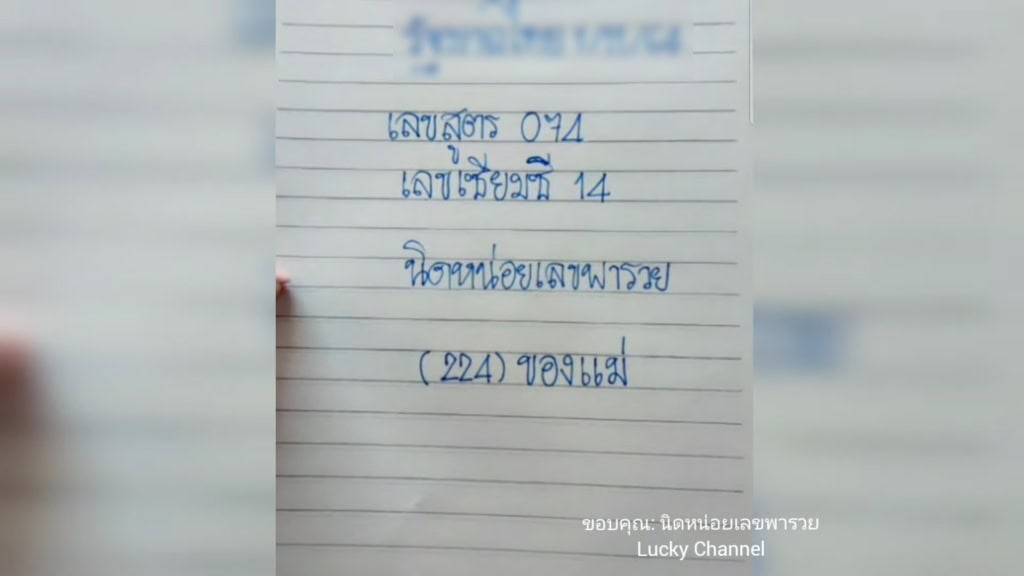 เลขสูตร 074
เลขเซียมซี 14
นิดหน่อยเลขพารวย
(224) ของแม่
ขอบคุณ: นิดหน่อยเลขพารวย
Lucky Channel